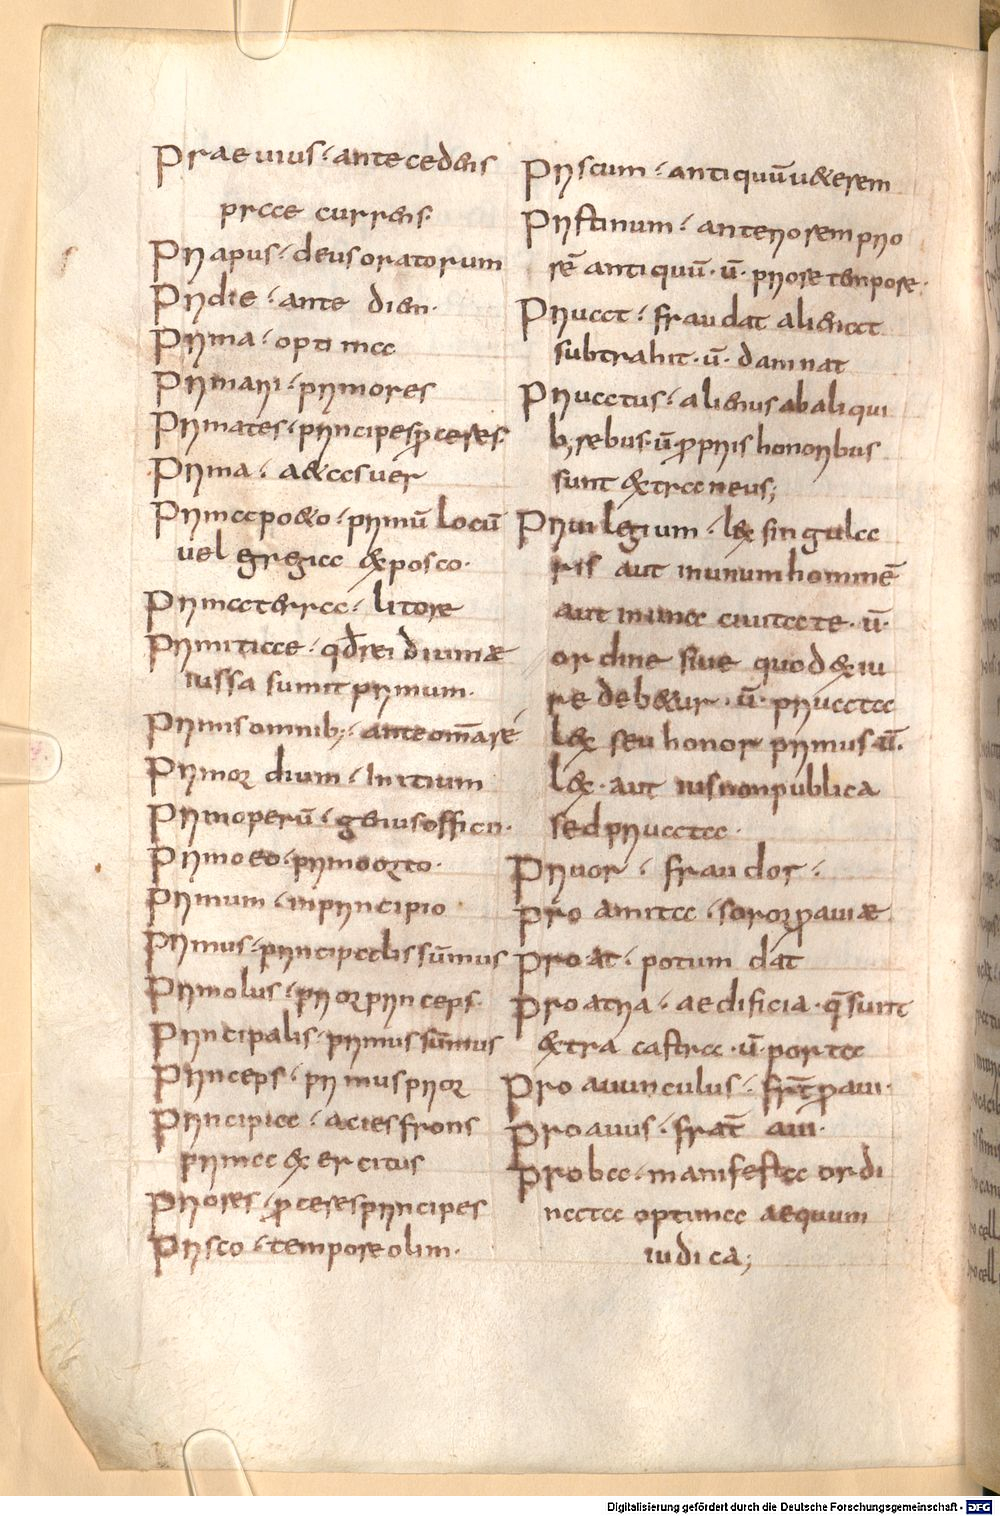 Praeuius· antecedens
praecurrens·
Priapus· deus oratorum
Pridie· ante diem·
Prima· optima
Primari· primores
Primates· principes proceres·
Prima· aetas uer
Prima poeo· primū locū
uel gregia exposco·
Prima terra· litore
Primitiae· qđ rei diuinae
iussa sumit primum·
Primis omnib;· ante om̄a
Primordium· Initium
Primoperū· genius officii·
Primoeo· primo orto·
Primum· in principio
Primus· principalis sūmus
Primolus· prior princeps·
Principalis· primus sūmus
Princeps· primus prior
Principia· acies frons
prima exercitus
Priores· proceres principes
Prisco· tempore olim·
Priscum· antiquū ueterem
Pristinum· anteriorem prio
rē antiquū· ū· priore tempore·
Priuat· fraudat aliena
subtrahit· ū· damnat
Priuatus· alienus ab aliqui
b; rebus· ū· propriis honoribus
sunt extraneus;
Priuilegium· lex singula
ris aut in unum hominē
aut in una ciuitate· ū·
ordine siue quod ex iu
re debetur· ū· priuata
lex seu honor primus ū·
lex· aut ius non publica
sed priuata·
Priuor· fraudor·
Pro amita· soror proauiae
Proat· potum dat
Proatria· aedificia· q̄ sunt
extra castra· ū· porta
Proauunculus· frat̄ proaui·
Proauus· frat̄ aui·
Proba· manifesta ordi
nata optima aequum
iudica;
Digitalisierung gefördert durch die Deutsche Forschungsgemeinschaft - DFG